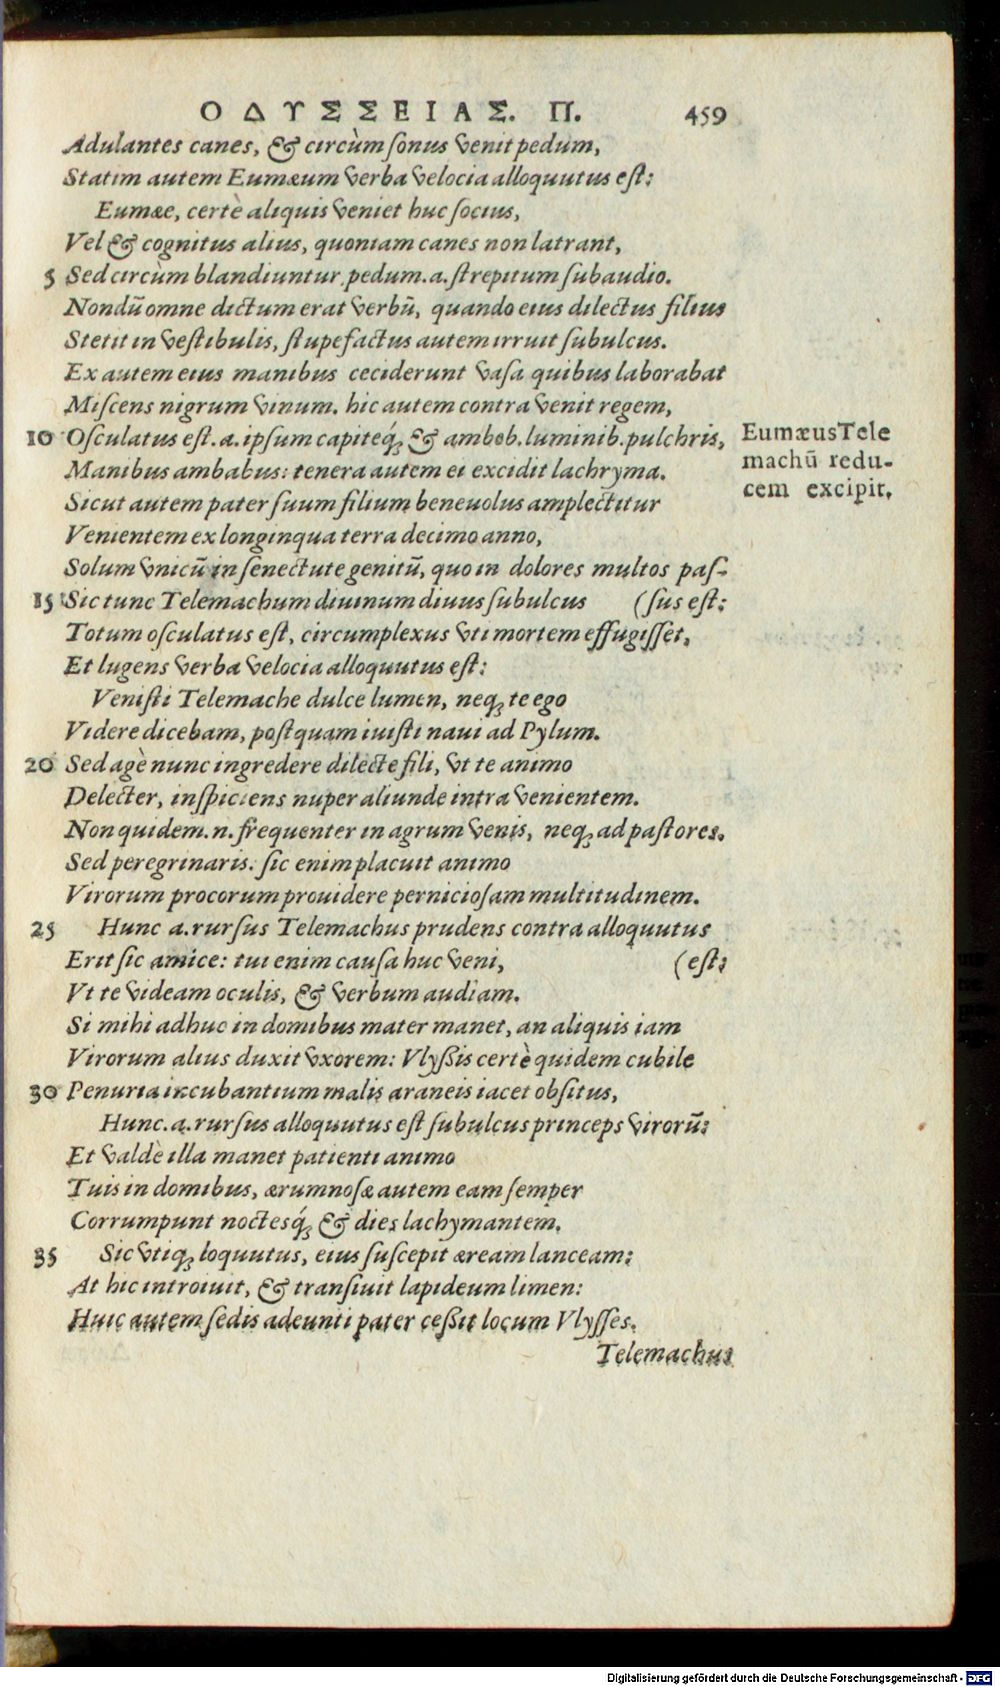 ΟΔΥΣΣΕΙΑΣ. Π. 459
Adulantes canes, & circùm ſonus venit pedum,
Statim autem Eumæum verba velocia alloquutus eſt:
Eumæe, certè aliquis veniet huc ſocius,
Vel & cognitus alius, quoniam canes non latrant,
5 Sed circùm blandiuntur. pedum. a. ſtrepitum ſubaudio.
Nondū omne dictum erat verbū, quando eius dilectus filius
Stetit in veſtibulis, ſtupefactus autem irruit ſubulcus.
Ex autem eius manibus ceciderunt vaſa quibus laborabat
Miſcens nigrum vinum. hic autem contra venit regem,
10 Oſculatus eſt. a. ipſum capiteq́; & ambob. luminib. pulchris,
Manibus ambabus: tenera autem ei excidit lachryma.
Sicut autem pater ſuum filium beneuolus amplectitur
Venientem ex longinqua terra decimo anno,
Solum vnicū in ſenectute genitū, quo in dolores multos paſ-
15 Sic tunc Telemachum diuinum diuus ſubulcus (ſus eſt:
Totum oſculatus eſt, circumplexus vti mortem effugiſſet,
Et lugens verba velocia alloquutus eſt:
Veniſti Telemache dulce lumen, neq; te ego
Videre dicebam, poſtquam iuiſti naui ad Pylum.
20 Sed agè nunc ingredere dilecte fili, vt te animo
Delecter, inſpiciens nuper aliunde intra venientem.
Non quidem. n. frequenter in agrum venis, neq; ad paſtores.
Sed peregrinaris: ſic enim placuit animo
Virorum procorum prouidere pernicioſam multitudinem.
25 Hunc a. rurſus Telemachus prudens contra alloquutus
Erit ſic amice: tui enim cauſa huc veni, (eſt:
Vt te videam oculis, & verbum audiam.
Si mihi adhuc in domibus mater manet, an aliquis iam
Virorum alius duxit vxorem: Vlyßis certè quidem cubile
30 Penuria incubantium malis araneis iacet obſitus,
Hunc. a. rurſus alloquutus eſt ſubulcus princeps virorū:
Et valdè illa manet patienti animo
Tuis in domibus, ærumnoſæ autem eam ſemper
Corrumpunt noctesq́; & dies lachymantem.
35 Sic vtiq; loquutus, eius ſuſcepit æream lanceam:
At hic introiuit, & tranſiuit lapideum limen:
Huic autem ſedis adeunti pater ceßit locum Vlyſſes.
Telemachus
Eumæus Tele
machū redu-
cem excipit.
Digitalisierung gefördert durch die Deutsche Forschungsgemeinschaft - DFG